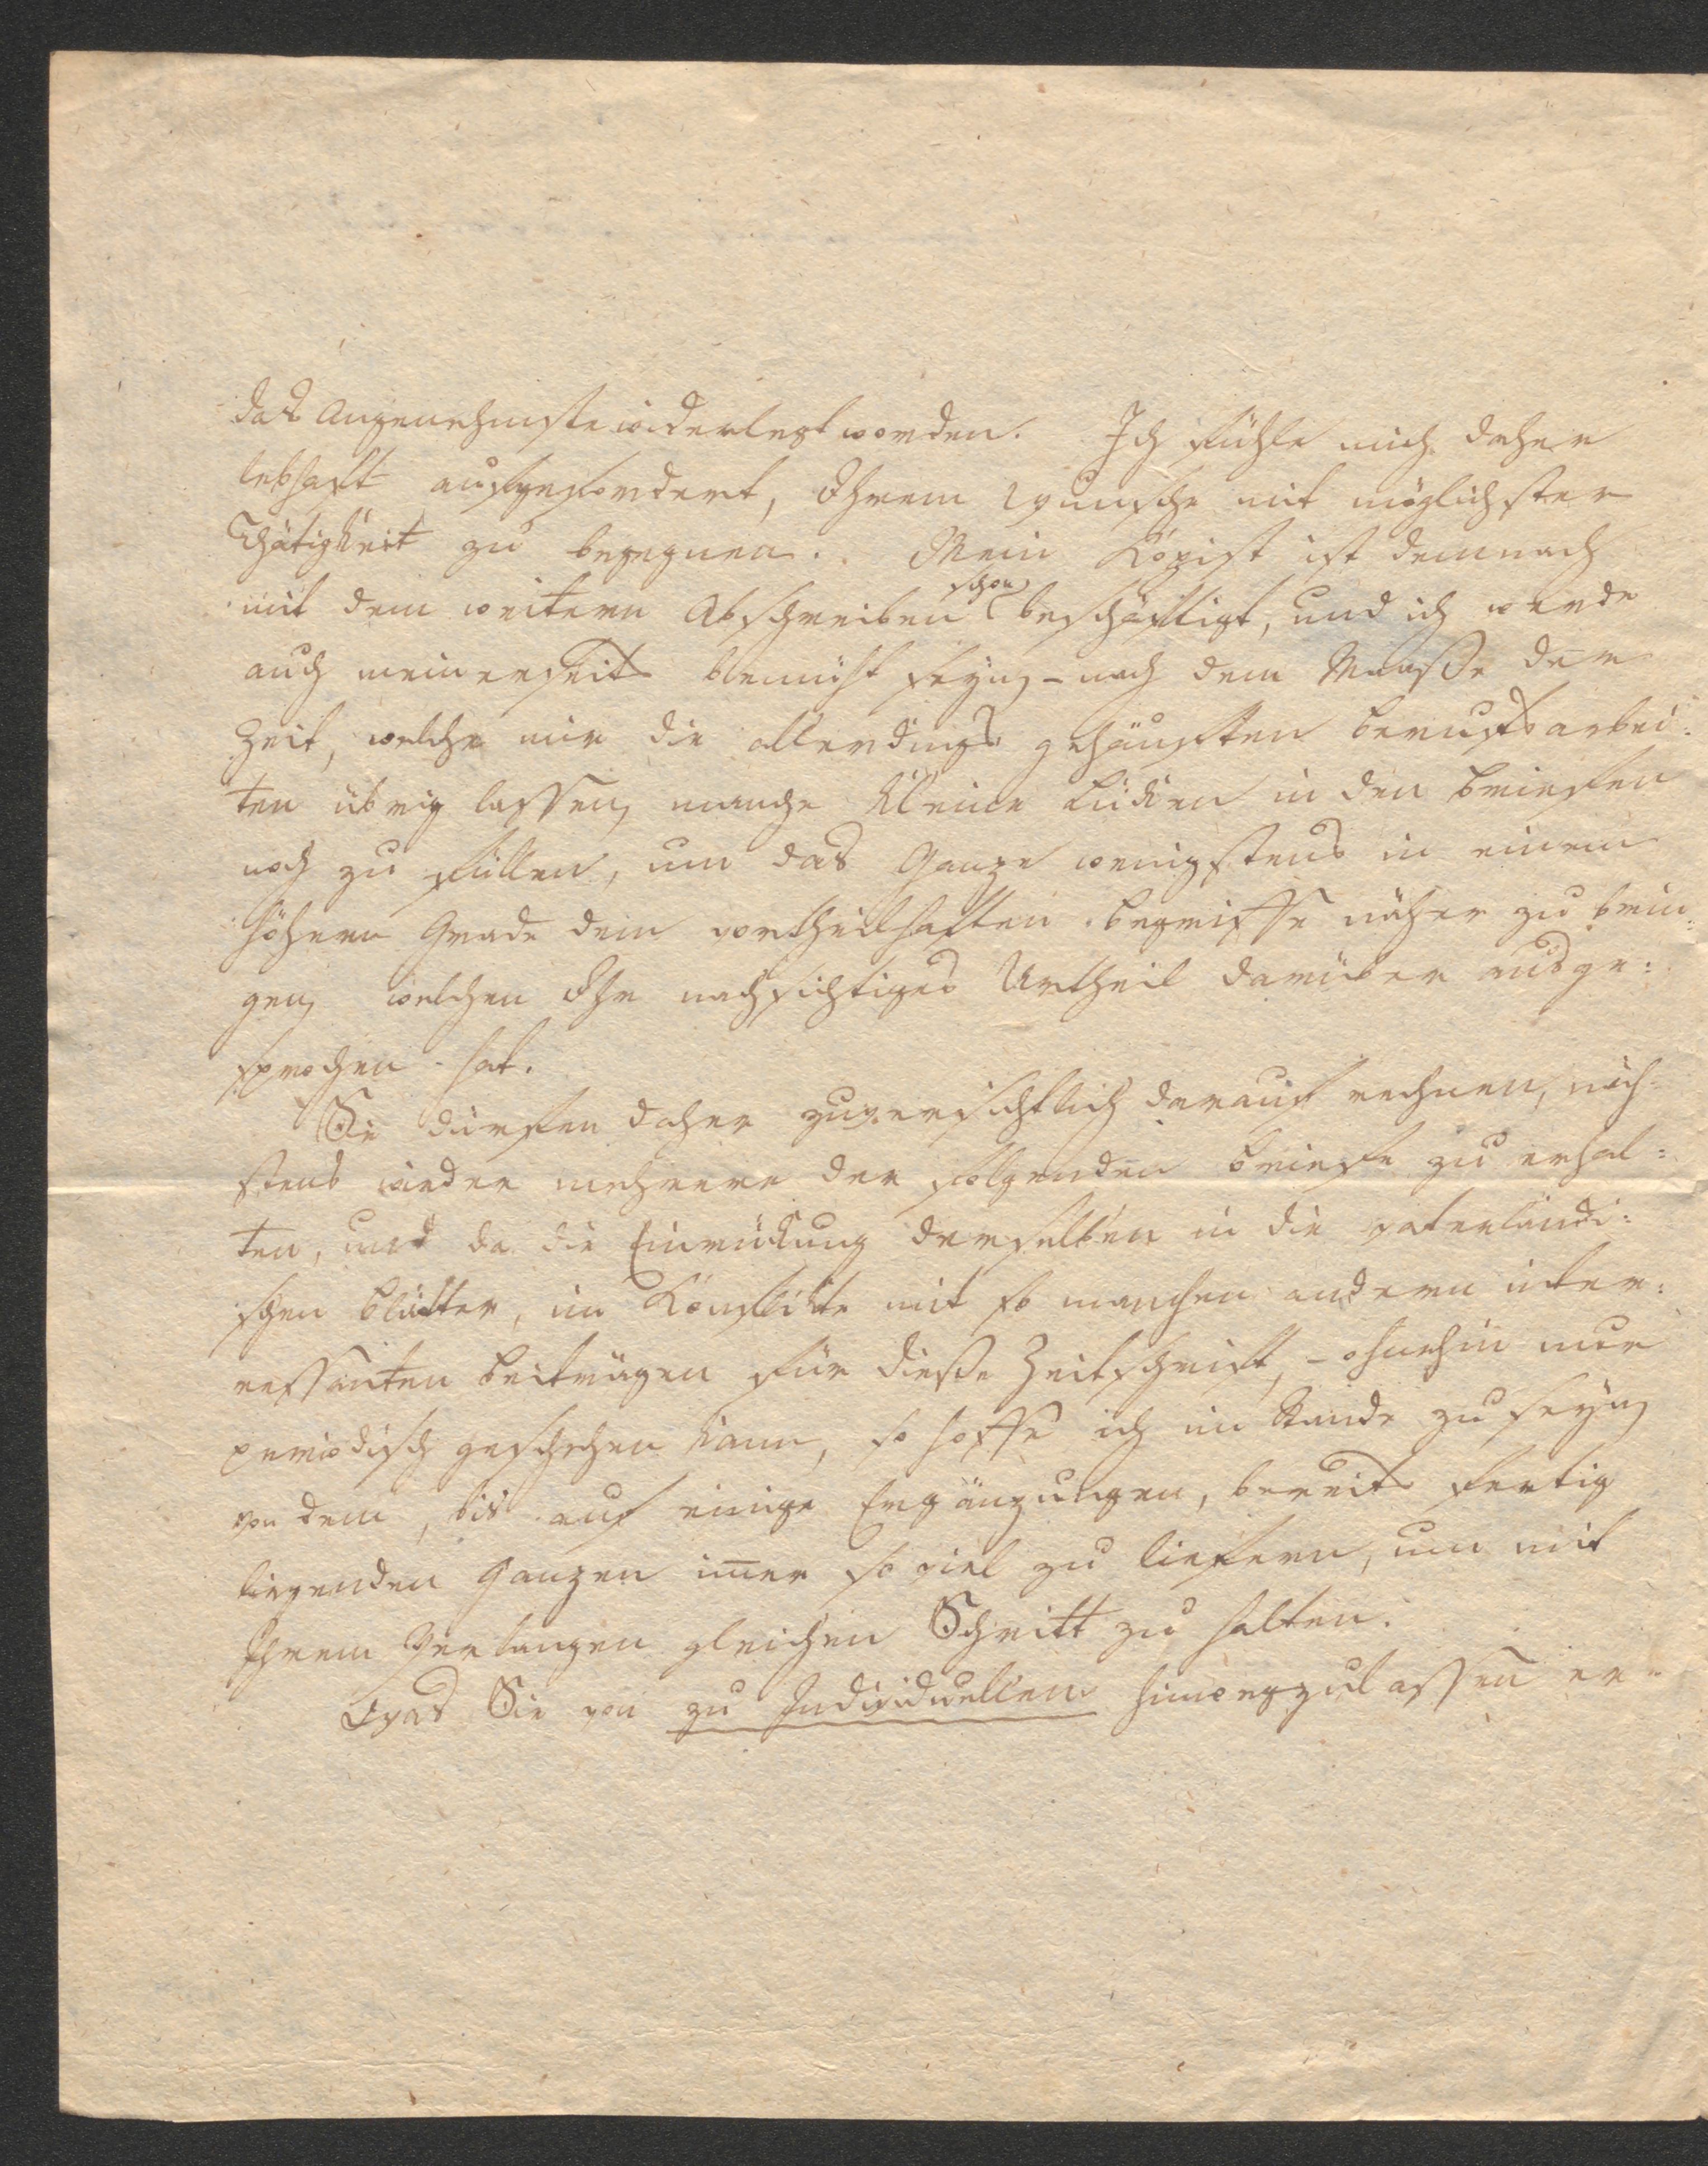 das Angenehmste widerlegt worden. Ich fühle mich daher
lebhaft aufgefordert, Ihrem Wunsche mit möglichster
Thätigkeit zu begegnen. Mein Kopist ist demnach
mit dem weitern Abschreiben schon beschäftigt, und ich werde
auch meinerseits bemüht seyn, – nach dem Maaße der
Zeit, welche mir die allerdings gehäuften Berufsarbei:
ten übrig lassen, manche kleine Lücken in den Briefen
noch zu füllen, um das Ganze wenigstens in einem
höhern Grade dem vortheilhaften Begriffe näher zu brin:
gen, welchen Ihr nachsichtiges Urtheil darüber ausge:
sprochen hat.
Sie dürfen daher zuversichtlich darauf rechnen, näch:
stens wieder mehrere der folgenden Briefe zu erhal:
ten, und da die Einrückung derselben in die vaterländi:
schen Blätter, im Konflikte mit so manchen andern inter:
ressanten Beiträgen für diese Zeitschrift, – ohnehin nur
periodisch geschehen kann, so hoffe ich im Stande zu seyn,
von dem, bis auf einige Ergänzungen, bereits fertig
liegenden Ganzen im̄er so viel zu liefern, um mit
Ihrem Verlangen gleichen Schritt zu halten.
Was Sie von zu Individuellem hinwegzulassen er: